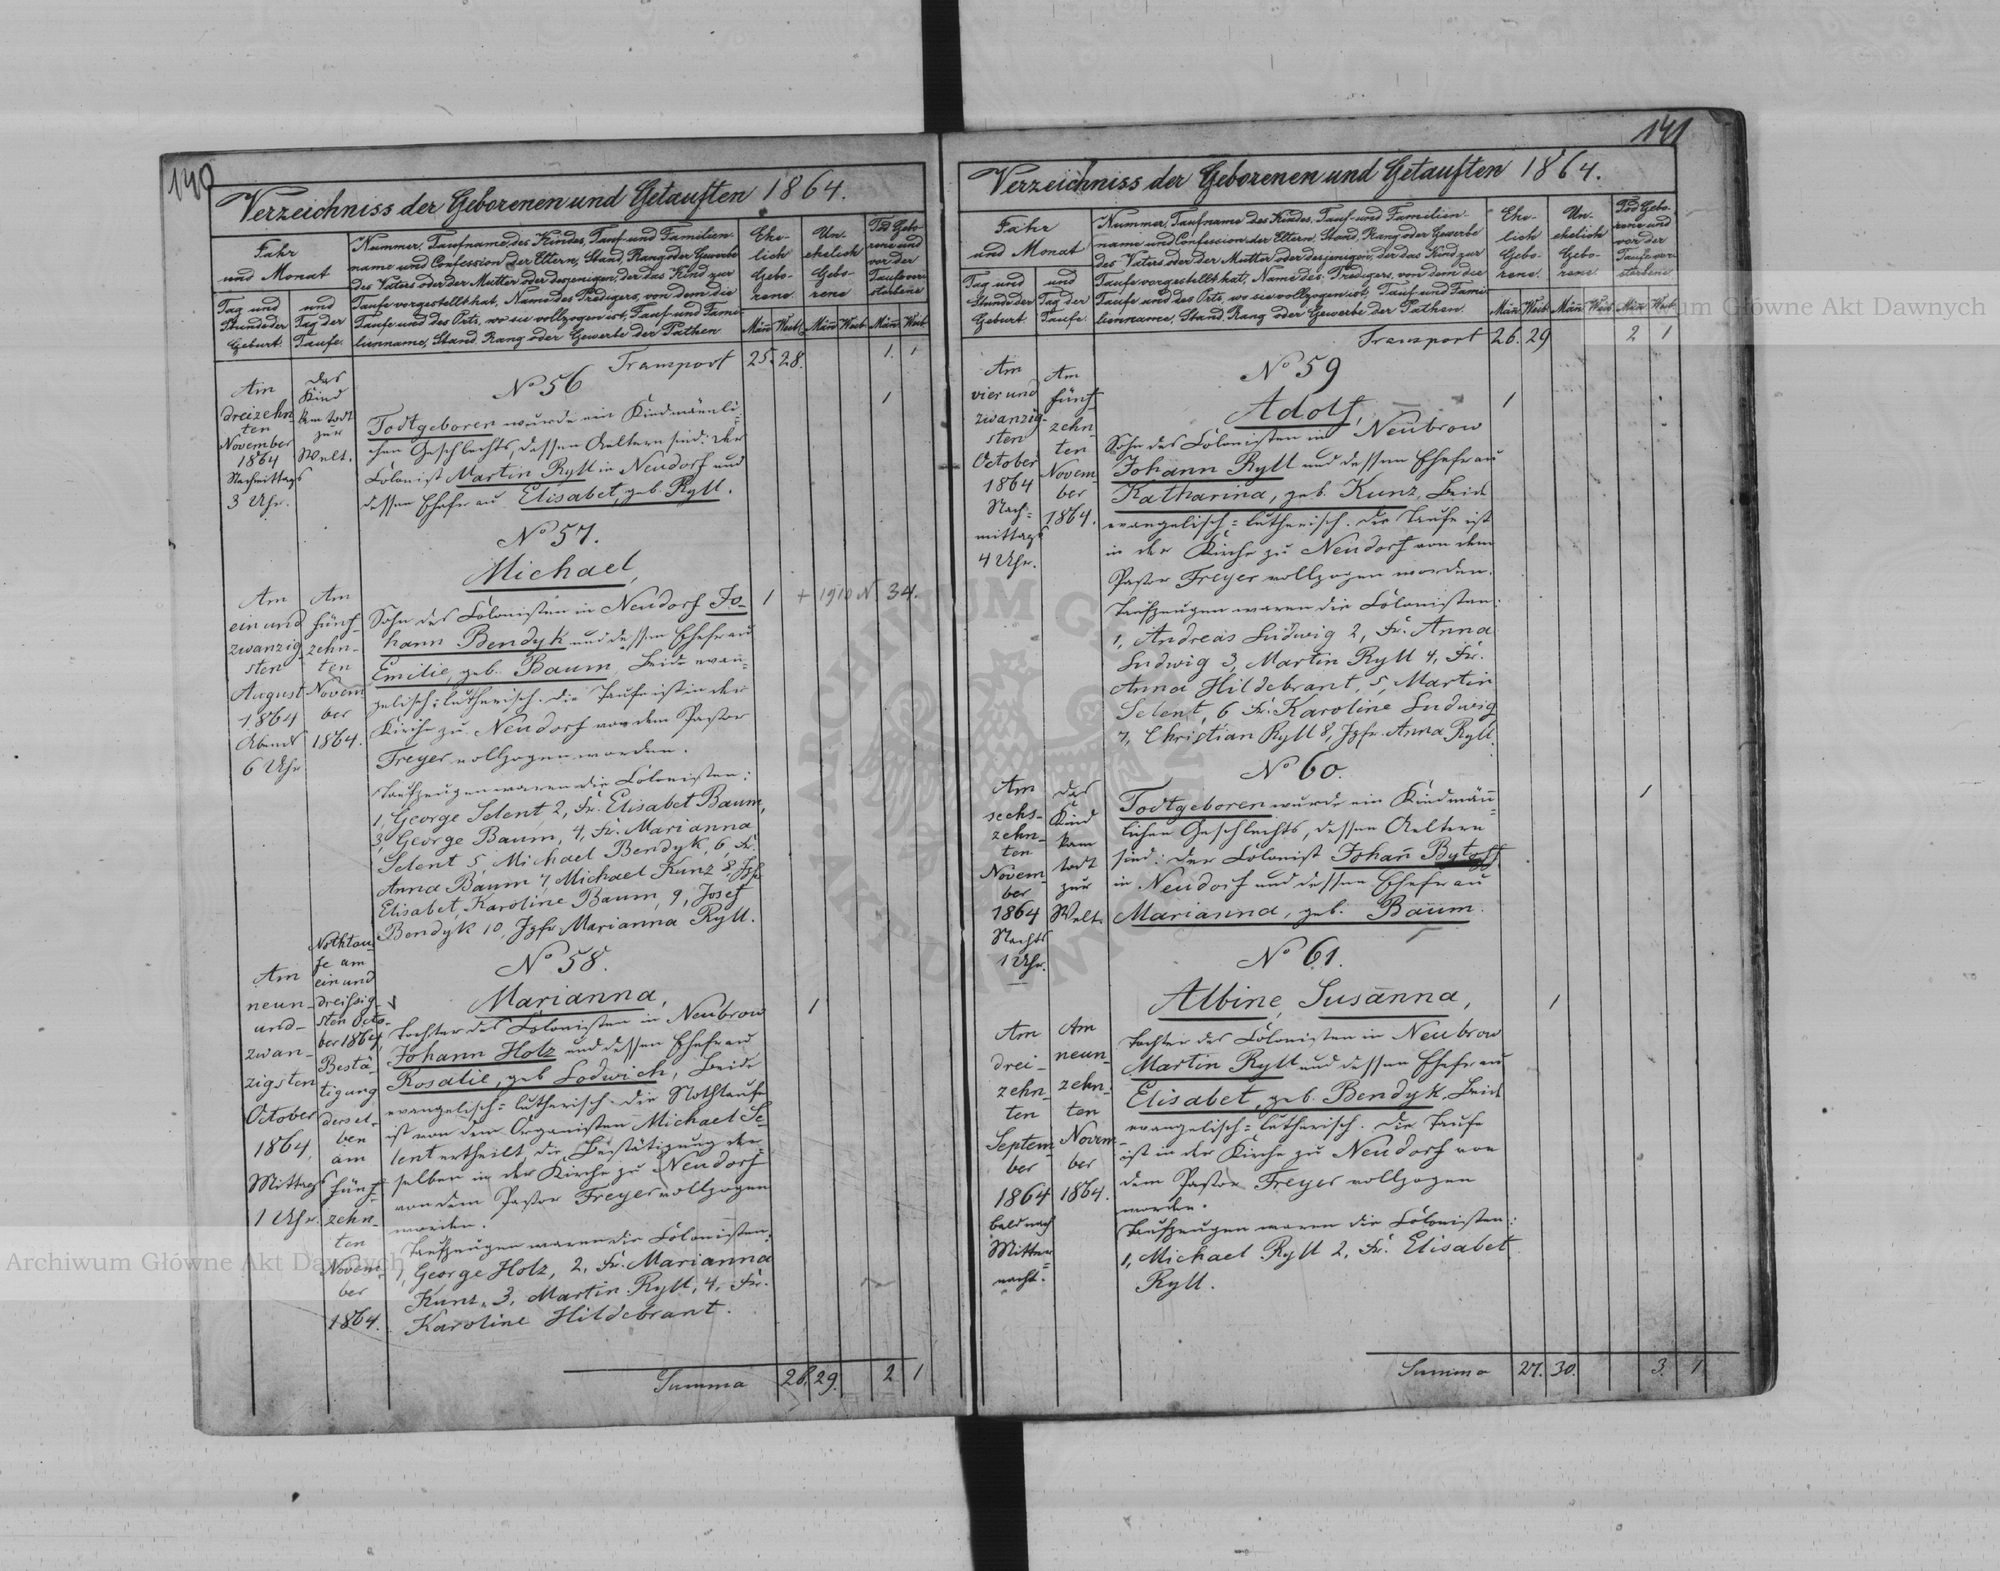 140
Verzeichniss der Geborenen und Getauften 1864.
Jahr
und Monat
Tag und
Stunde der
Geburt.
und
Tag der
Taufe.
Nummer, Taufname des Kindes, Tauf- und Familien-
name und Confession der Eltern, Stand, Rang oder Gewerbe
des Vaters oder der Mutter oder desjenigen, der das Kind zur
Taufe vorgestellt hat, Name des Predigers, von dem die
Taufe und des Orts, wo sie vollzogen ist, Tauf- und Fami-
lienname, Stand, Rang oder Gewerbe der Pathen.
Ehe-
lich
Gebo-
rene.
Un-
ehelich
Gebo-
rene
Tod Gebo-
rene und
vor der
Taufe ver-
storbene
Män Weib Män Weib Män Weib
Transport 25. 28. 1. 1
Am
dreizehn-
ten
November
1864
Nachmittags
3 Uhr.
Das
Kind
kam todt
zur
Welt.
No 56
Todtgeboren wurde ein Kind männli-
chen Geschlechts, dessen Aeltern sind: der
Colonist Martin Ryll in Neudorf und
dessen Ehefrau Elisabet, geb. Ryll.
1
No 57.
Michael,
Am
ein und
zwanzig-
sten
August
1864
Abends
6 Uhr
Am
fünf-
zehn-
ten
Novem
ber
1864.
Sohn des Colonisten in Neudorf Jo-
hann Bendyk und dessen Ehefrau
Emilie, geb. Baum, Beide evan-
gelisch-lutherisch. Die Taufe ist in der
Kirche zu Neudorf von dem Pastor
Freyer vollzogen worden.
Taufzeugen waren die Colonisten:
1, George Selent 2, Fr. Elisabet Baum,
3, George Baum, 4, Fr. Marianna
Selent, 5, Michael Bendyk, 6, Fr.
Anna Baum 7, Michael Kunz 8, Jgfr
Elisabet, Karoline Baum, 9, Josef
Bendyk 10, Jgfr. Marianna Ryll.
1 + 1910 N 34.
No 58.
Marianna,
Am
neun-
und-
zwan-
zigsten
October
1864.
Mittags
1 Uhr.
Nothtau-
fe am
ein und
dreißig-
sten Octo-
ber 1864,
Bestä-
tigung
dersel-
ben
am
fünf-
zehn-
ten
Novem-
ber
1864.
Tochter des Colonisten in Neubrow
Johann Holz und dessen Ehefrau
Rosalie, geb Lodwich, Beide
evangelisch-lutherisch. Die Nothtaufe
ist von dem Organisten Michael Se-
lent ertheilt, die Bestätigung der-
selben in der Kirche zu Neudorf
von dem Pastor Freyer vollzogen
worden.
Taufzeugen waren die Colonisten:
1, George Holz, 2, Fr. Marianna
Kunz, 3, Martin Ryll, 4, Fr.
Karoline Hildebrant.
1
Summa 26. 29. 2 1
141
Verzeichniss der Geborenen und Getauften 1864.
Jahr
und Monat
Tag und
Stunde der
Geburt.
und
Tag der
Taufe.
Nummer, Taufname des Kindes, Tauf- und Familien-
name und Confession der Eltern, Stand, Rang oder Gewerbe
des Vaters oder der Mutter oder desjenigen, der das Kind zur
Taufe vorgestellt hat, Name des Predigers, von dem die
Taufe und des Orts, wo sie vollzogen ist, Tauf- und Fami-
lienname, Stand, Rang oder Gewerbe der Pathen.
Ehe-
lich
Gebo-
rene.
Un-
ehelich
Gebo-
rene.
Tod Gebo-
rene und
vor der
Taufe ver-
storbene
Män Weib Män Weib Män Weib
Transport 26. 29 2 1
Am
vier und
zwanzig-
sten
October
1864
Nach-
mittags
4 Uhr.
Am
fünf-
zehn-
ten
Novem-
ber
1864.
No 59
Adolf,
Sohn des Colonisten in Neubrow
Johann Ryll und dessen Ehefrau
Katharina, geb. Kunz, Beide
evangelisch-lutherisch. Die Taufe ist
in der Kirche zu Neudorf von dem
Pastor Freyer vollzogen worden.
Taufzeugen waren die Colonisten:
1, Andreas Ludwig 2, Fr. Anna
Ludwig 3, Martin Ryll 4, Fr.
Anna Hildebrant, 5, Martin
Selent, 6 Fr. Karoline Ludwig
7, Christian Ryll 8, Jgfr. Anna Ryll.
1
No 60.
Am
sechs-
zehn-
ten
Novem-
ber
1864
Nachts
1 Uhr.
Das
Kind
kam
todt
zur
Welt.
Todtgeboren wurde ein Kind männ-
lichen Geschlechts, dessen Aeltern
sind: der Colonist Johan Bytoff
in Neudorf und dessen Ehefrau
Marianna, geb. Baum.
1
No 61.
Albine, Susanna,
Am
drei-
zehn-
ten
Septem-
ber
1864
bald nach
Mitter-
nacht.
Am
neun-
zehn-
ten
Novem-
ber
1864.
Tochter des Colonisten in Neubrow
Martin Ryll und dessen Ehefrau
Elisabet, geb. Bendyk, Beide
evangelisch-lutherisch. Die Taufe
ist in der Kirche zu Neudorf von
dem Pastor Freyer vollzogen
worden.
Taufzeugen waren die Colonisten:
1, Michael Ryll 2, Fr. Elisabet
Ryll.
1
Summa 27. 30. 3. 1
Archiwum Główne Akt Dawnych
Archiwum Główne Akt Dawnych